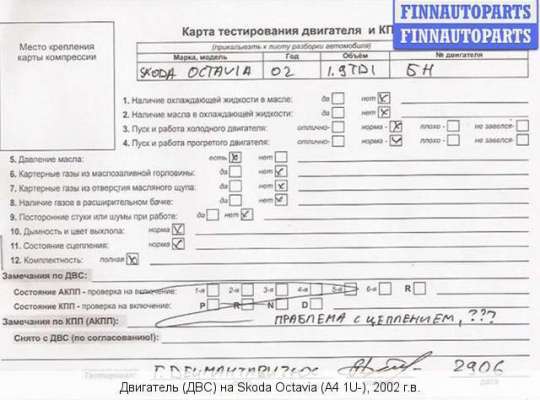 FINNAUTOPARTS
FINNAUTOPARTS
Карта тестирования двигателя и КП
(прикалывать к листу разборки автомобиля)
Место крепления карты компрессии
Марка, модель Год Объём № двигателя
SKODA OCTAVIA 02 1.9TDI БН
1. Наличие охлаждающей жидкости в масле: да нет
2. Наличие масла в охлаждающей жидкости: да нет
3. Пуск и работа холодного двигателя: отлично- норма - плохо - не завелся-
4. Пуск и работа прогретого двигателя: отлично- норма - плохо - не завелся-
5. Давление масла: есть нет
6. Картерные газы из маслозаливной горловины: да нет
7. Картерные газы из отверстия масляного щупа: да нет
8. Наличие газов в расширительном бачке: да нет
9. Посторонние стуки или шумы при работе: да нет
10. Дымность и цвет выхлопа: норма
11. Состояние сцепления: норма
12. Комплектность: полная
Замечания по ДВС:
Состояние АКПП - проверка на включение: 1-я 2-я 3-я 4-я 5-я 6-я R
Состояние КПП - проверка на включение: P R N D
Замечания по КПП (АКПП): ПРАБЛЕМА С ЦЕПЛЕНИЕМ, ???
Снято с ДВС (по согласованию!):
2906
Тестировал: дата
Двигатель (ДВС) на Skoda Octavia (A4 1U-), 2002 г.в.